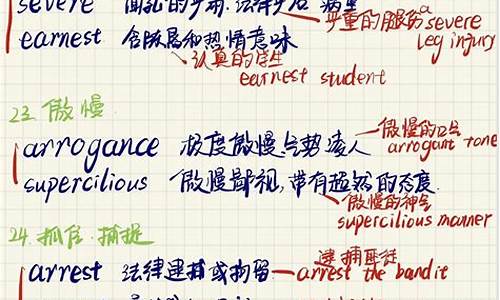 severe
earnest 含
和热情意味
severe
leg injury
认真的学生
earnest student
23. 傲慢
arrogance 极度傲慢,气势凌人
傲慢的口气
arrogant tone
supercilious 傲慢鄙视,带有超然的态度
傲慢的神气
supercilious manner
24. 抓住.捕捉
arrest 法律逮捕或拘留
逮捕匪徒
arrest the bandit